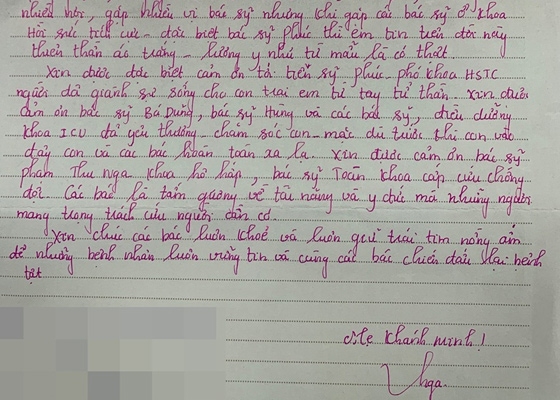 nhiều nơi, gặp nhiều vị bác sỹ nhưng khi gặp các bác sỹ ở khoa
Hồi sức tích cực - đặc biệt bác sỹ Phúc thì em tin trên đời này
thiên thần áo trắng - lương y như từ mẫu là có thật.
Xin được đặc biệt cảm ơn tới tiến sỹ phúc - phó khoa HSTC
người đã giành sự sống cho con trai em từ tay tử thần. Xin được
cảm ơn bác sỹ Bá Dũng, bác sỹ Hùng và các bác sỹ, điều dưỡng
khoa ICU đã yêu thương - chăm sóc con - mặc dù trước khi con vào
đây con và các bác hoàn toàn xa lạ. Xin được cảm ơn bác sỹ
phạm Thu Nga khoa hô hấp, bác sỹ Toàn khoa cấp cứu chống
độc. Các bác là tấm gương về tài năng và y đức mà những người
mang trọng trách cứu người cần có.
Xin chúc các bác luôn khoẻ và luôn giữ trái tim nồng ấm
để những bệnh nhân luôn vững tin và cùng các bác chiến đấu lại bệnh
tật
Mẹ Khánh Minh!
Nga